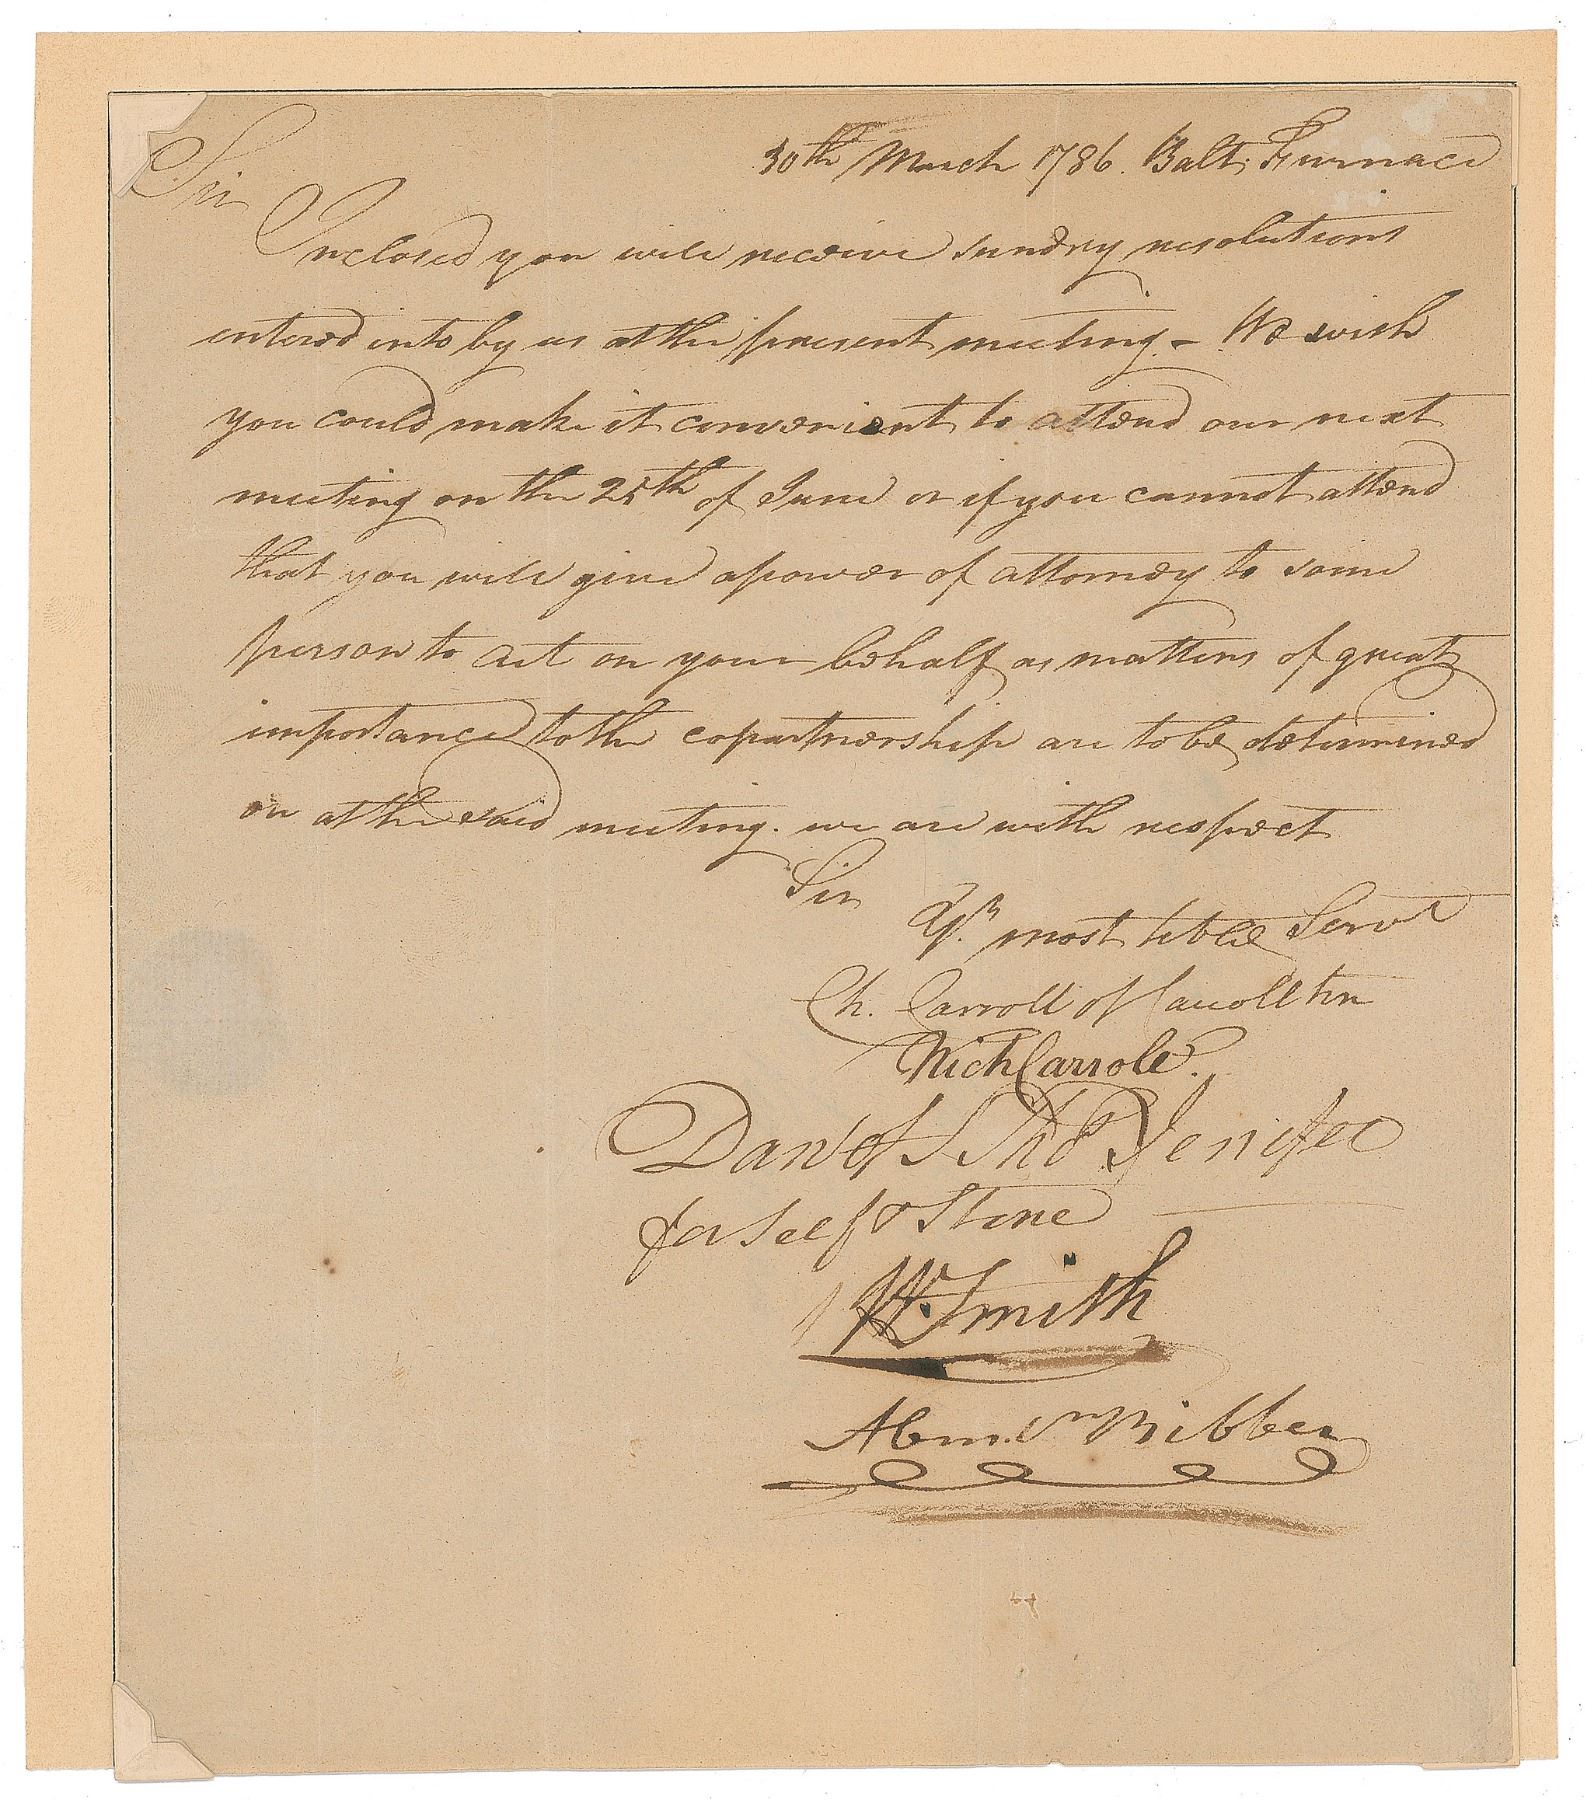 30th March 1786. Balt. Furnace
Sir
Inclosed you will receive sundry resolutions
entered into by us at the present meeting - We wish
you could make it convenient to attend our next
meeting on the 25th of June or if you cannot attend
that you will give a power of attorney to some
person to act on your behalf as matters of great
importance to the copartnership are to be determined
on at the said meeting. we are with respect
Sir
Yr. most hble Servt
Ch. Carroll of Carrollton
Nich Carroll.
Dan of St Thos Jenifer
for self & Stone
Wm Smith
Abm. Vn Bibber